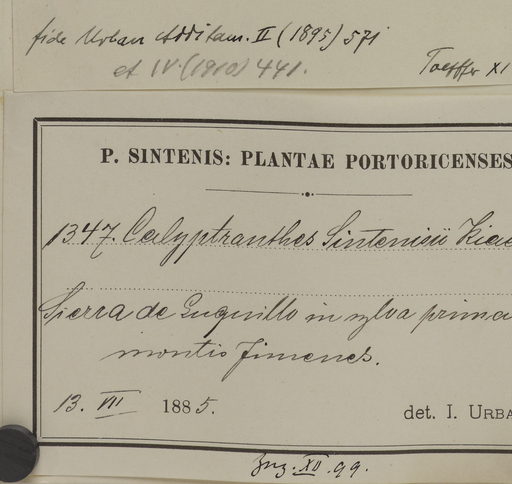 fide Urban Additam. II (1895) 571
et IV (1910) 441.
Toepffer XI
P. SINTENIS: PLANTAE PORTORICENSES
1347. Calyptranthes Sintenisii Kiae
Sierra de Luquillo in sylva prima
montis Jimenes.
13. VII 1885.
det. I. URBA
XII. 99.